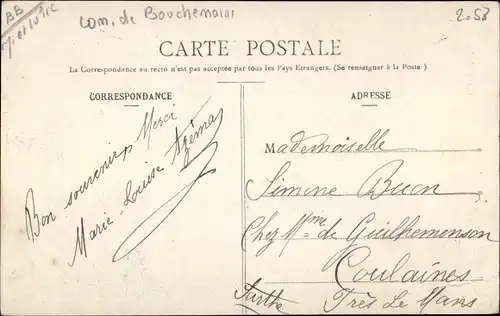 com. de Bouchemaine
2058
CARTE POSTALE
La Correspondance au recto n'est pas acceptée par tous les Pays Etrangers. (Se renseigner à la Poste.)
CORRESPONDANCE
Bon souvenir, Merci
Marie-Louise Azéma
ADRESSE
Mademoiselle
Simone Buon
Chez Mme de Guilhemonson
Coulaines
Très Le Mans
Sarthe